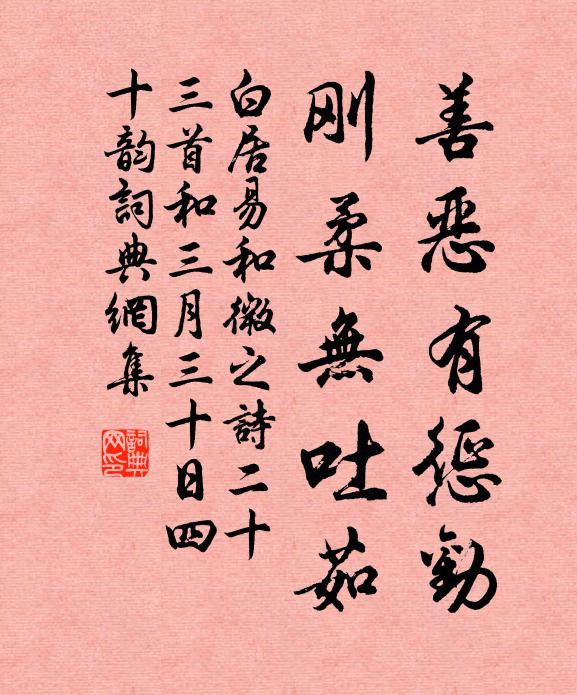 善惡有惩勸
刚柔無吐茹
白居易和微之詩二十
三首和三月三十日四
十韵詞典網集
詞典网印